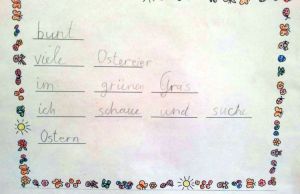 bunt
viele Ostereier
im grünen Gras
ich schaue und suche
Ostern